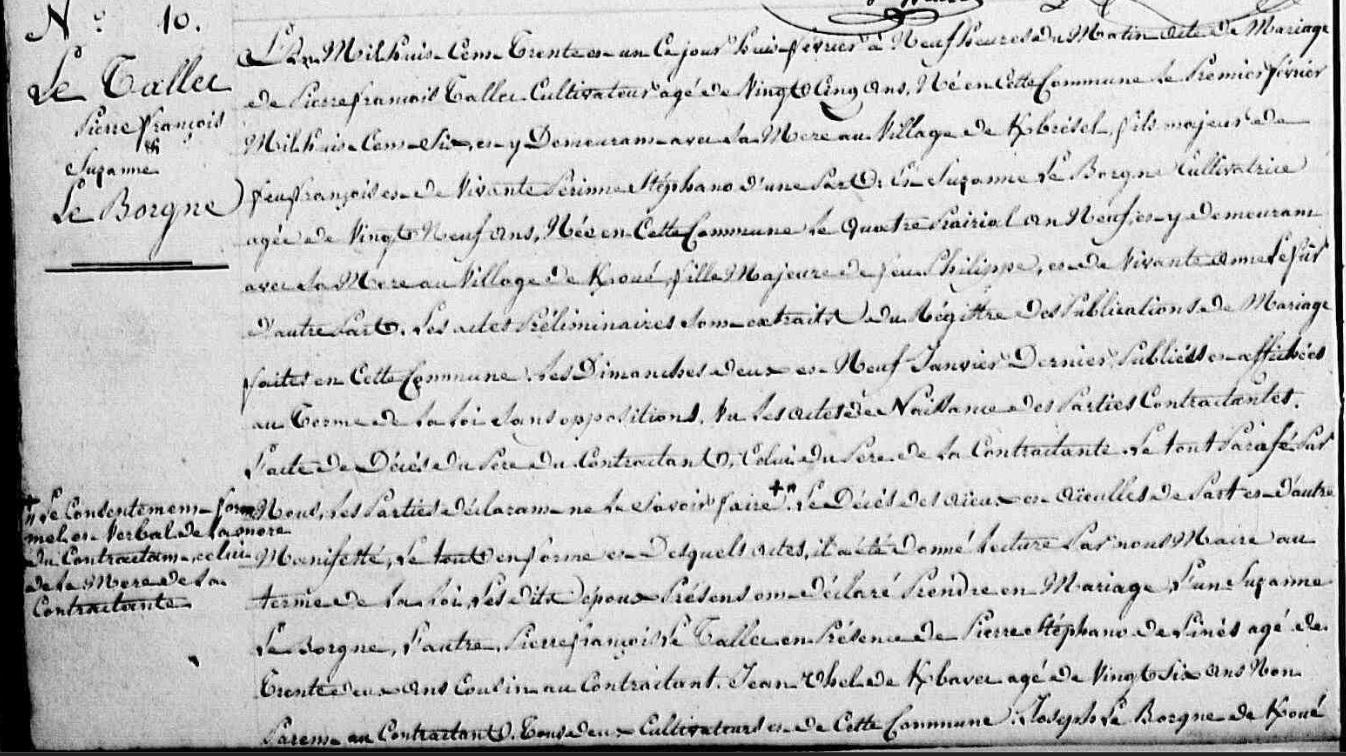 N.° 10.
Le Tallec
Pierre françois
et
Suzanne
Le Borgne
L'An Mil huit Cent Trente et un Ce jour huit février à Neuf heures du Matin acte de Mariage
de Pierre francois Tallec Cultivateur agé de Vingt Cinq ans, Né en Cette Commune Le Premier février
Mil huit Cent Six, et y Demeurant avec Sa Mere au Village de Kbrésel, fils majeur de
feu françois et de Vivante Perinne Stéphano d'une Part. Et Suzanne Le Borgne Cultivatrice
agée de Vingt Neuf ans, Née en Cette Commune Le Quatre Prairial an Neuf, et y demeurant
avec Sa Mere au Village de Kroué, fille Majeure de feu Philippe, et de Vivante anne
d'autre Part. Les actes Préliminaires Sont extraits du Régittre des Publications de Mariage
faites en Cette Commune. Les Dimanches deux et Neuf Janvier Dernier, Publiées et affichées
au Terme de La Loi Sans oppositions. Vu Les actes de Naissance des Parties Contractantes.
L'acte de Décès du Pere du Contractant, Celui du Pere de La Contractante. Le tout Parafé Par
Nous, Les Parties déclarant ne Le Savoir faire +". Le Décés des aïeux et aïeulles de Part et D'autre
Manifetté, Le tout en forme et Desquels actes, il a été Donné Lecture Par nous Maire au
terme de La Loi, Les dits époux Présens ont déclaré Prendre en Mariage L'un Suzanne
Le Borgne, L'autre, Pierre françois Le Tallec en Présence de Pierre Stéphano de agé de
Trente deux ans Cousin au Contractant. Jean de Kbavec agé de Vingt Six ans Non
Parent au Contractant. Tous deux Cultivateurs et de Cette Commune. Joseph Le Borgne de Kroué
+" Le Consentement for
mel et Verbal de La mere
du Contractant, celui
de La Mere de La
Contractante